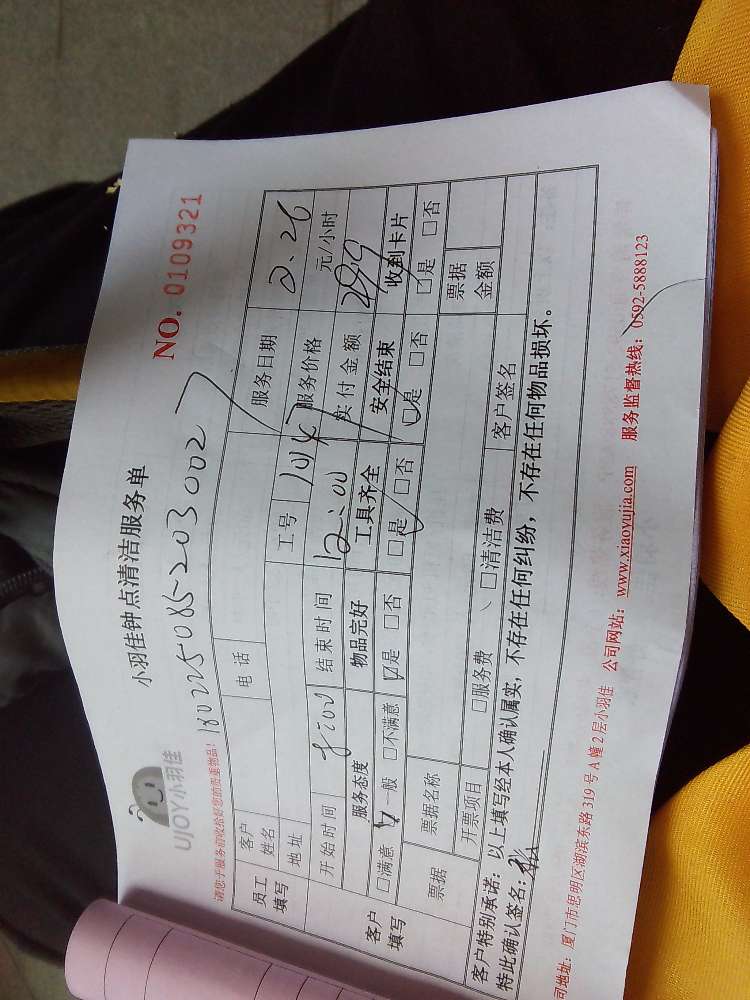 小羽佳钟点清洁服务单
UJOY小羽佳
NO. 0109321
请您于服务前收拾好您的贵重物品!
客户姓名 电话 服务日期 2.26
员工填写 地址 工号 服务价格 元/小时
开始时间 结束时间 12:00 实付金额 299
服务态度 物品完好 工具齐全 安全结束 收到卡片
客户填写 □满意 ☑一般 □不满意 ☑是 □否 ☑是 □否 ☑是 □否 □是 □否
票据 票据名称 票据金额
开票项目 □服务费 □清洁费 客户签名
客户特别承诺:以上填写经本人确认属实,不存在任何纠纷,不存在任何物品损坏。
特此确认签名:
司地址:厦门市思明区湖滨东路319号A幢2层小羽佳 公司网站:www.xiaoyujia.com 服务监督热线:0592-5888123